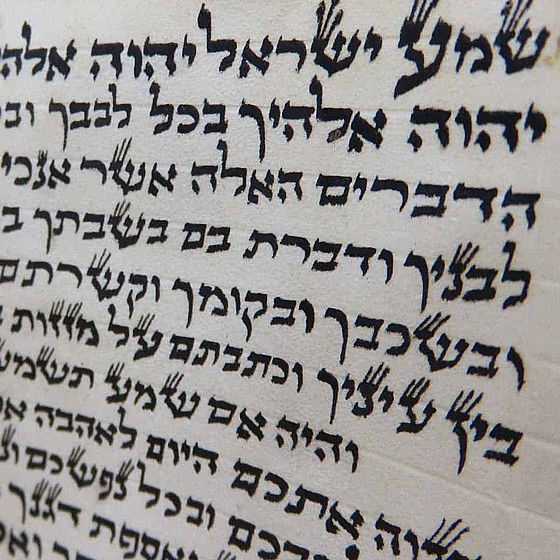 שמע ישראל יהוה אלהי
יהוה אלהיך בכל לבבך ובכ
הדברים האלה אשר אנכי
לבניך ודברת בם בשבתך ב
ובשכבך ובקומך וקשרתם
בין עיניך וכתבתם על מזזות
והיה אם שמע תשמע
אתכם היום לאהבה את
ובכל נפשכם
ואספת דגנך